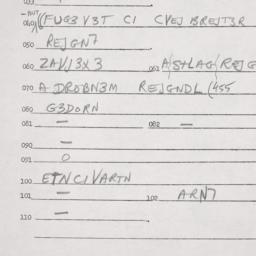 040 (FUG3 V3T C1 CVEJ BREJT3R
050 REJGN7
060 ZAVJ3X3 061 A/S+LAG/REJG
070 A DROBN3M REJGNDL (455
080 G3DORN
081 — 082 —
090 —
091 O
100 ETNC1VARTN
101 — 102 ARN7
110 —